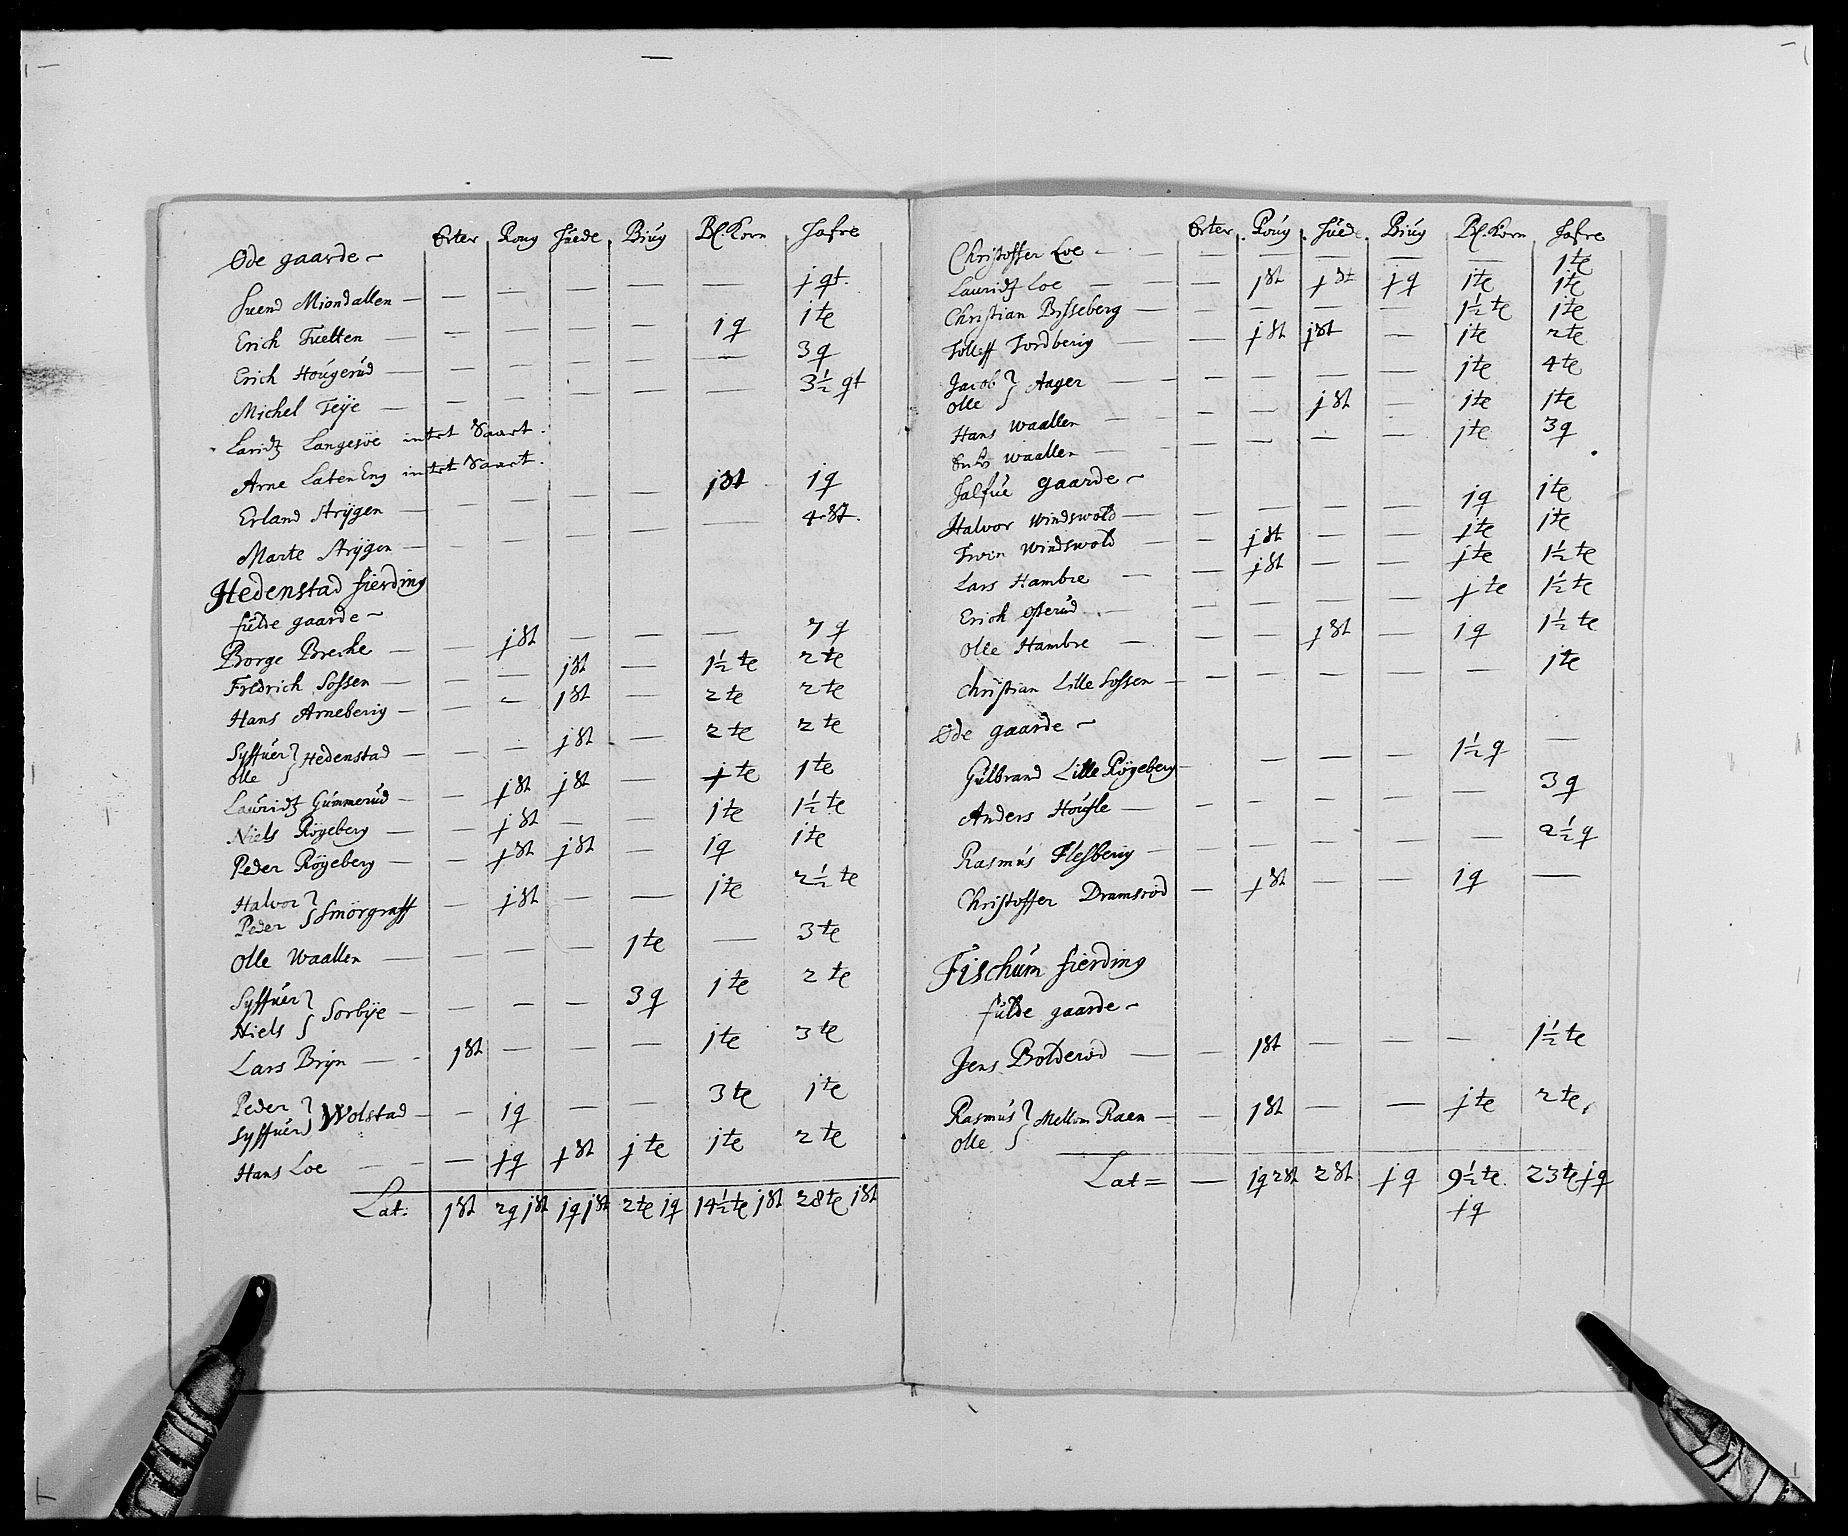 Erter Roug Huede Biug Bl. Korn Hafre
Øde gaarde
Suend Miondallen — — — — — j qt.
Erich Tuetten — — — — 1 q 1 te
Erich Hougerud — — — — — 3 q
Michel Feye — — — — — 3½ qt
Laridtz Langesøe intet Saaet.
Arne LatenEng intet Saaet.
Erland Strygen — — — — j St 1 q
Marte Strygen — — — — — 4 St.
Hedenstad fierding
fulde gaarde
Borge Breche — j St — — — 7 q
Fredrich Sossen — — j St — 1½ te 2 te
Hans Arneberig — — 1 St — 2 te 2 te
Syffuer } Hedenstad — — j St — 2 te 2 te
Olle
Lauridtz Gummerud — j St j St — j te 1 te
Niels Røyeberg — j St — — 1 te 1½ te
Peder Røyeberg — j St j St — 1 q 1 te
Halvor } Smörgraff — j St — — 1 te 2½ te
Peder
Olle Waallen — — — 1 te — 3 te
Syffuer } Sorbye — — — 3 q 1 te 2 te
Niels
Lars Bryn — 1 St — — — 1 te 3 te
Peder } Wolstad — 1 q — — 3 te 1 te
Syffuer
Hans Loe — j q j St j te 1 te 2 te
Lat: j St 2 q j St 1 q j St 2 te 1 q 14½ te j St 28 te 1 St
Erter Roug Huede Biug Bl. Korn Hafre
Christoffer Loe — — — — — 1 te
Lauridtz Loe — j St j St j q 1 te 1 te
Christian Bisseberg — — — — 1½ te 1 te
Tolleff Fordberig — j St j St — 1 te 2 te
Jacob } Aager — — — — 1 te 4 te
Olle
Hans Waallen — — j St — 1 te 1 te
Waallen — — — — 1 te 3 q
Halfue gaarde
Halvor Windswold — — — — 1 q 1 te
Windswold — j St — — 1 te 1 te
Lars Hambre — j St — — j te 1½ te
Erich Osterud — — — — j te 1½ te
Olle Hambre — — j St — 1 q 1½ te
Christian Lille Sossen — — — — — 1 te
Øde gaarde
Gulbrand Lille Røyeberg — — — — 1½ q —
Anders Housle — — — — — 3 q
Rasmus Flesberig — — — — — 2½ q
Christoffer Dramsrod — j St — — 1 q —
Fischum fierding
fulde gaarde
Jens Bolderod — 1 St — — — 1½ te
Rasmus } Mellom Raen — 1 St — — j te 2 te
Olle
Lat = — 1 q 2 St 2 St j q 9½ te 23 te j q
j q